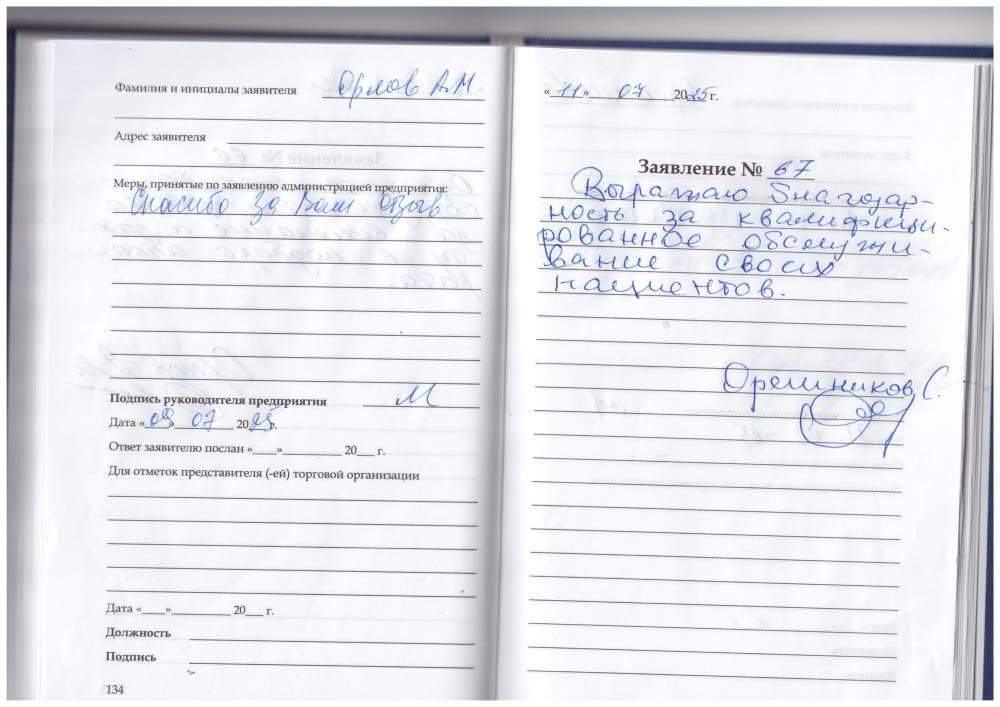 Фамилия и инициалы заявителя Орлов А.М
Адрес заявителя
Меры, принятые по заявлению администрацией предприятия:
Спасибо за Ваш отзыв
Подпись руководителя предприятия
Дата «09» 07 2025г.
Ответ заявителю послан «___»__________ 20___ г.
Для отметок представителя (-ей) торговой организации
Дата «____»__________ 20___ г.
Должность
Подпись
134
«11» 07 2025г.
Заявление № 67
Выражаю благодар-
ность за квалифици-
рованное обслужи-
вание своих
пациентов.
Орешников С.